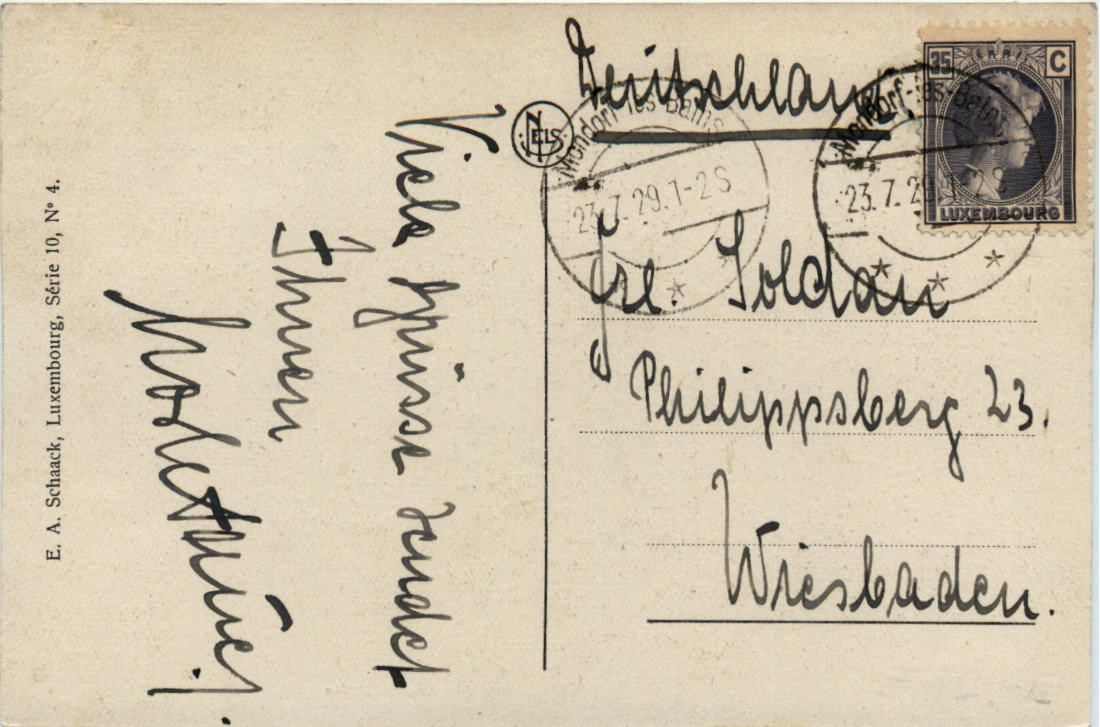 E. A. Schaack, Luxembourg, Série 10, Nº 4.
Viele Grüsse sendet
Ihnen
NELS
Deutschland
Mondorf-les-Bains
23.7.29.1-2S
Mondorf-les-Bains
23.7.29.1-2S
35 C
LUXEMBOURG
Frl. Soldan
Philippsberg 23.
Wiesbaden.